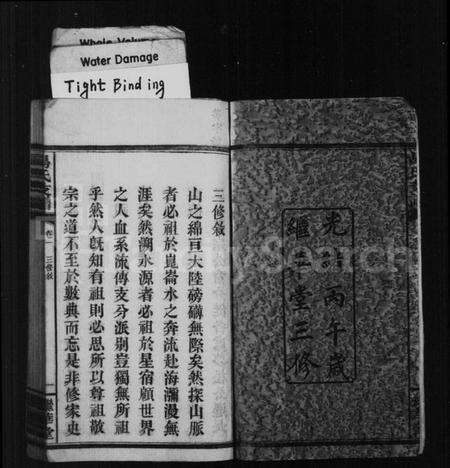 Whole Volume
Water Damage
Tight Binding
光緒丙午歲
繼三堂三修
三修敍
山之綿亘大陸磅礴無際矣然探山脈
者必祖於崑崙水之奔流赴海瀰漫無
涯矣然溯水源者必祖於星宿顧世界
之人血系流傳支分派別豈獨無所祖
乎然人旣知有祖則必思所以尊祖敬
宗之道不至於數典而忘是非修家史
氏支譜
卷一
三修敍
堂